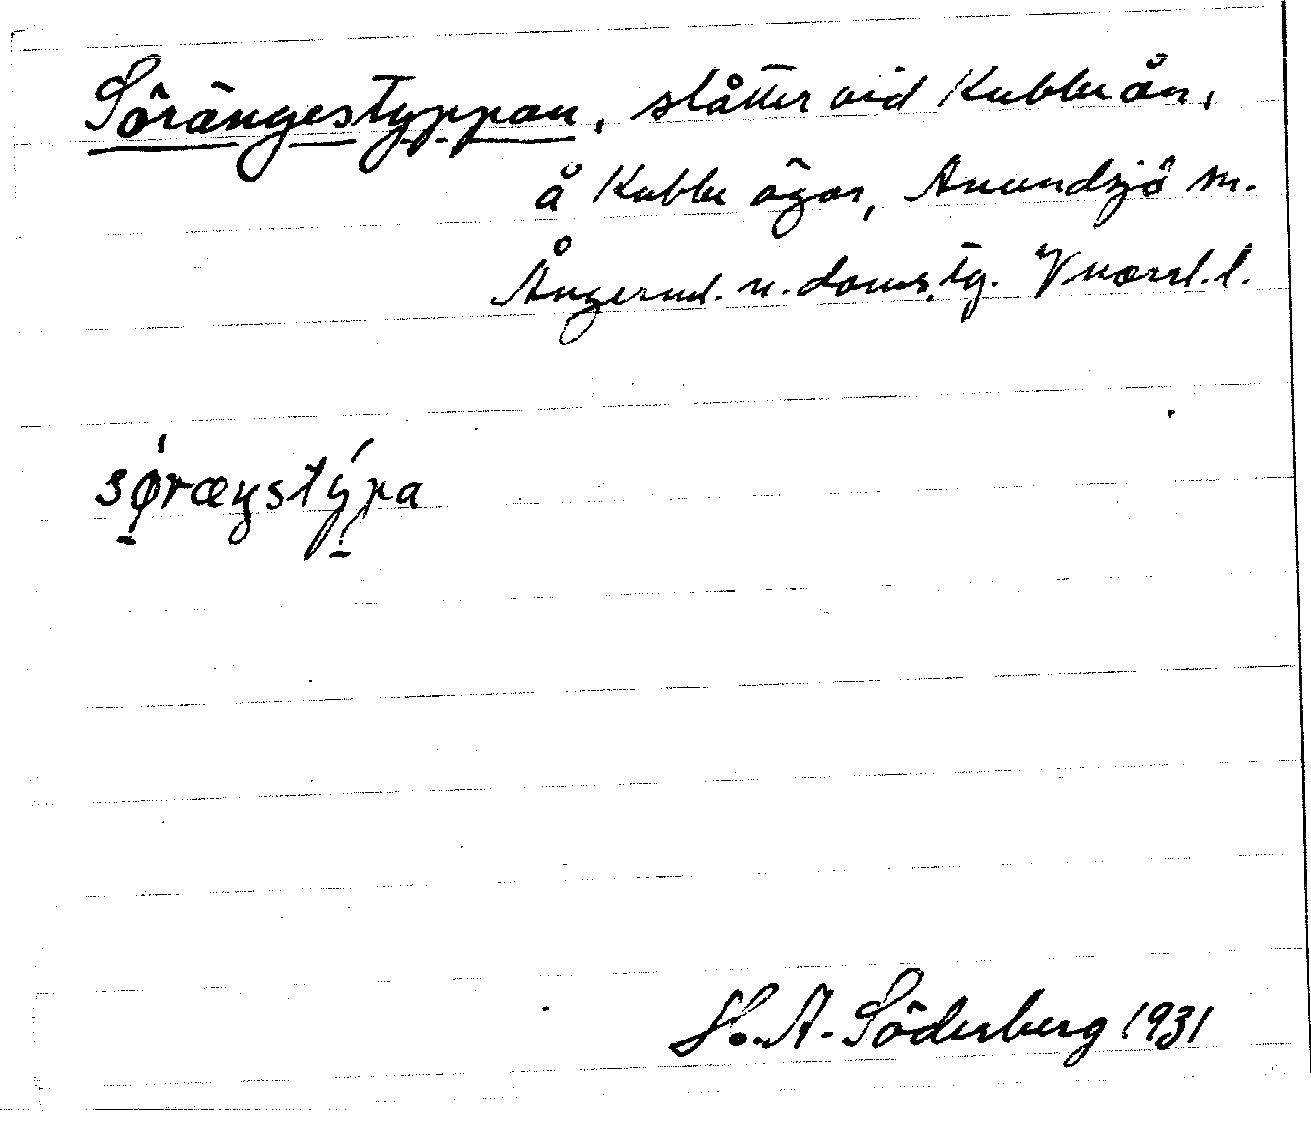 Sörängestyppan, slåtter vid Kubbeån,
å Kubbe ägor, Anundsjö sn.
Ångerml. n. doms.tg. Vnorrl. l.
sǿ̠ræŋstý̠pa
H. A. Söderberg 1931